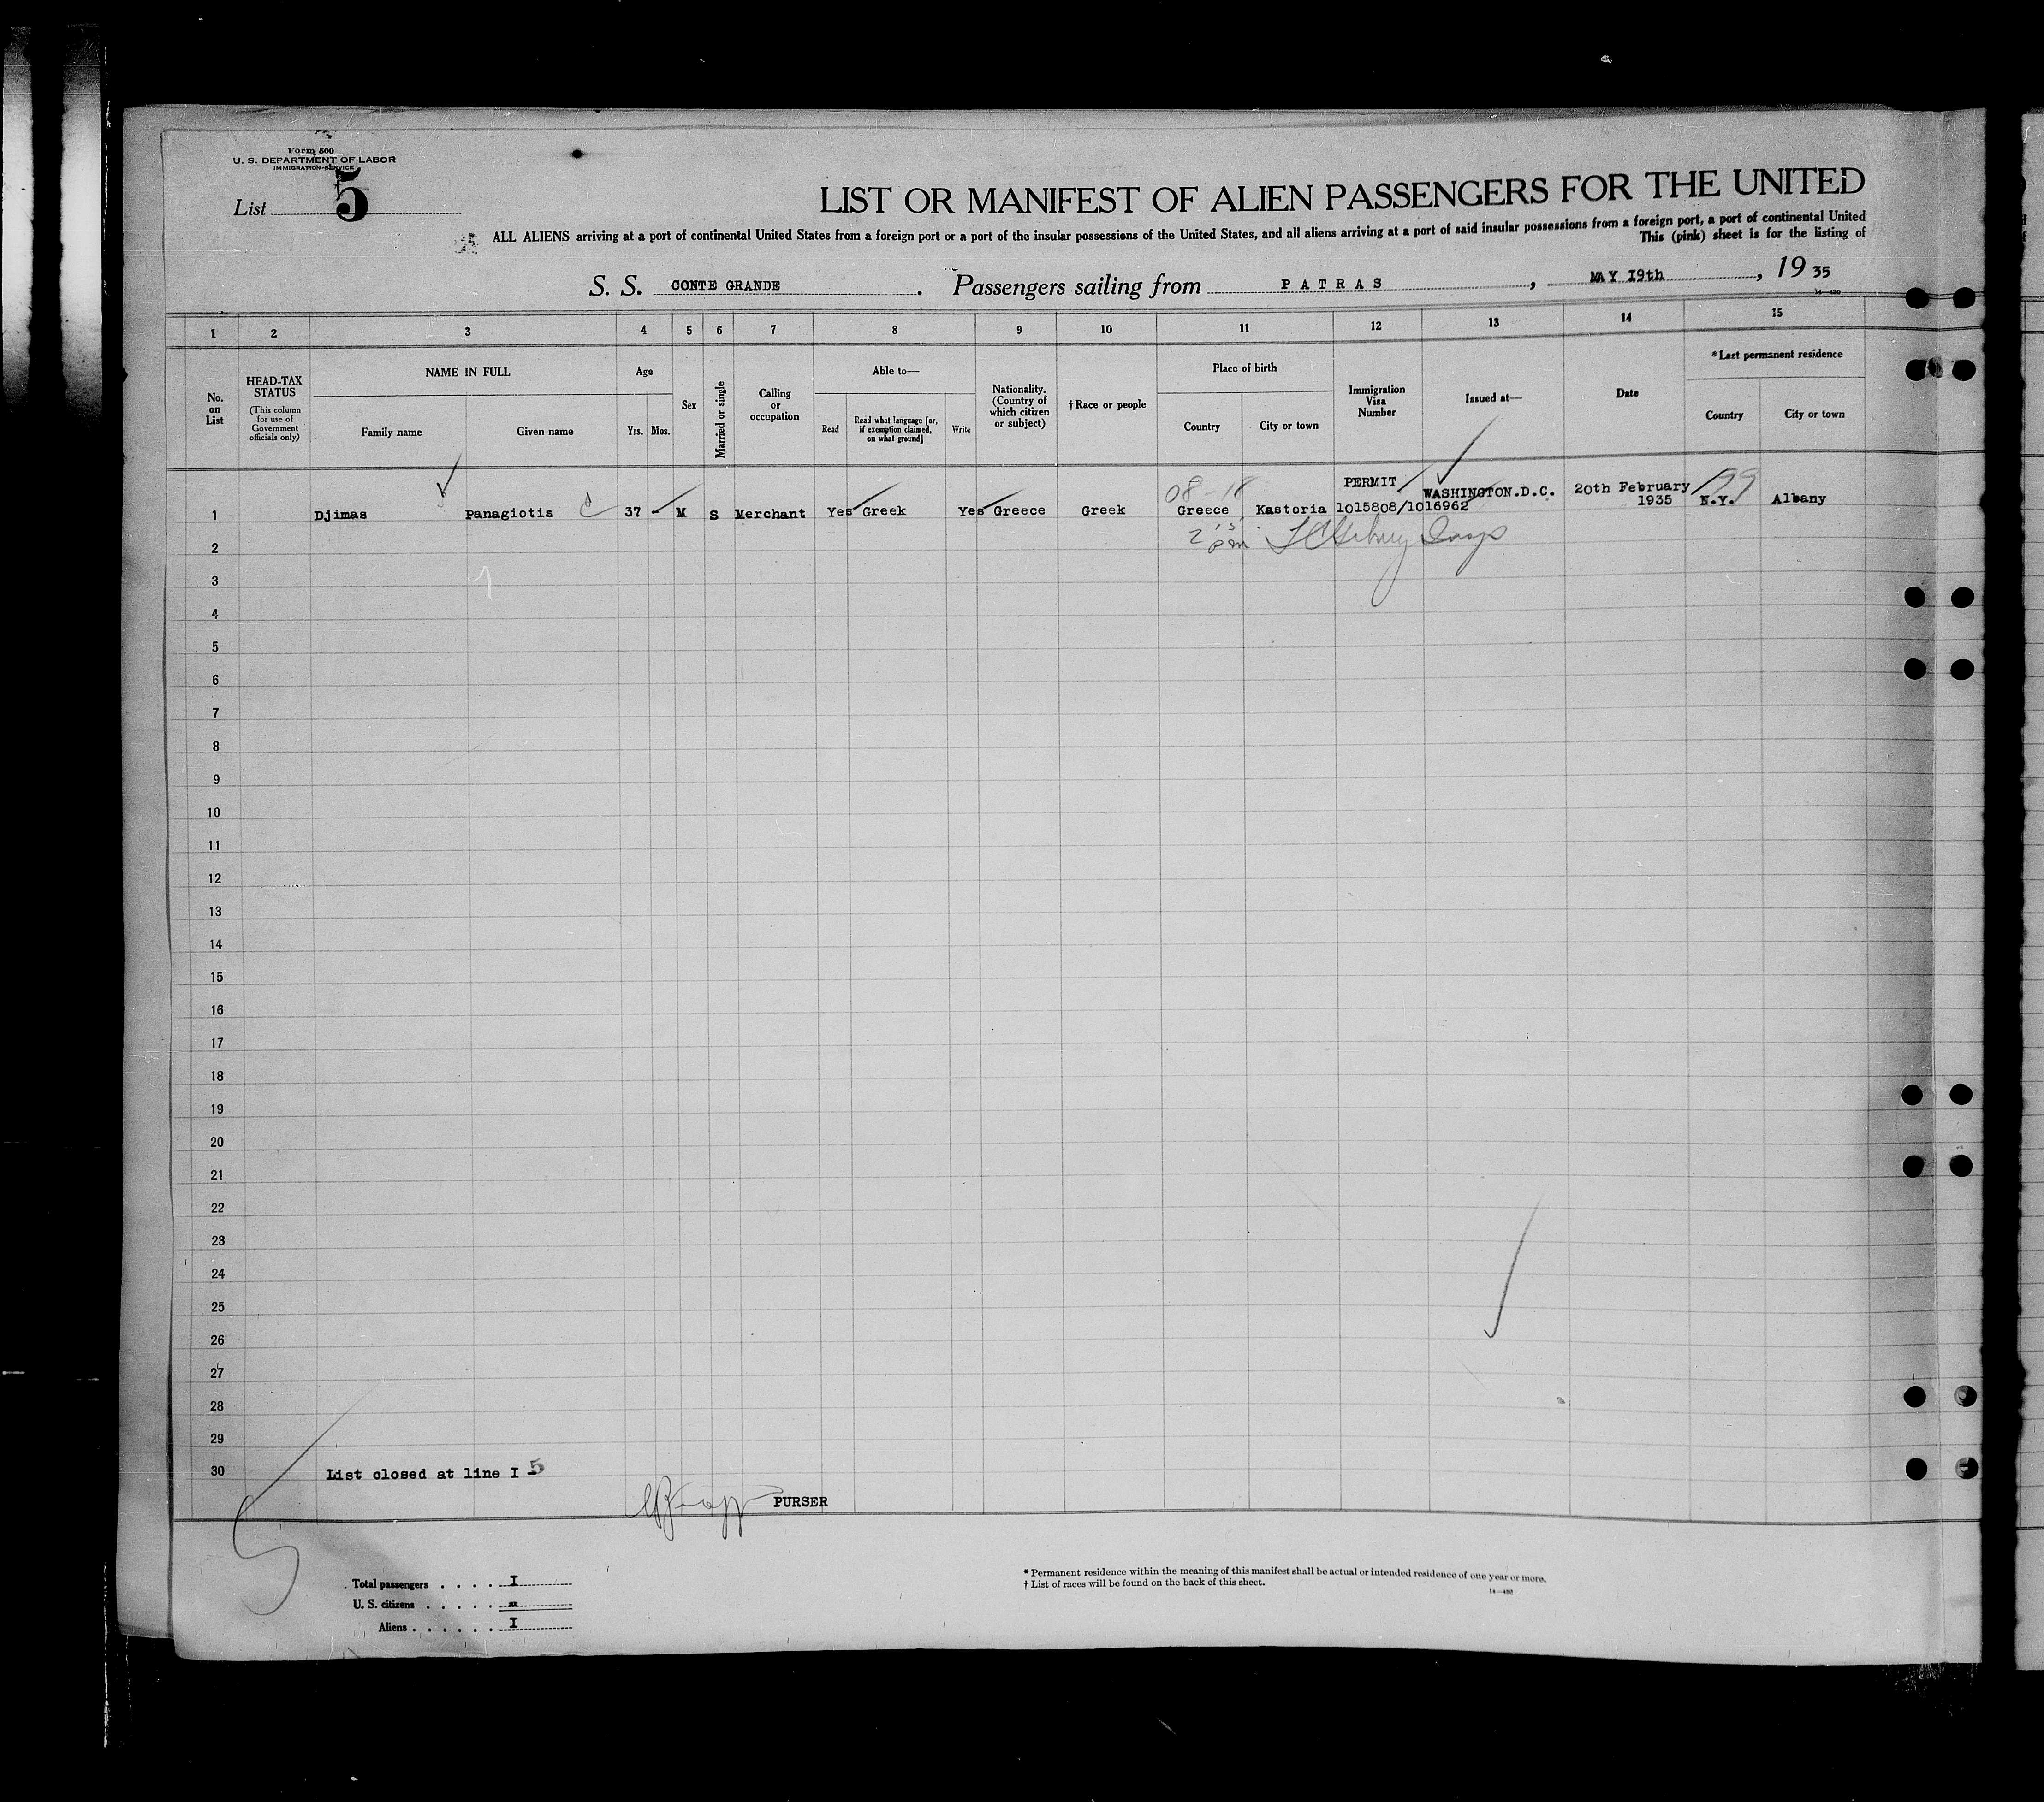 Form 500
U. S. DEPARTMENT OF LABOR
IMMIGRATION SERVICE
List 5
LIST OR MANIFEST OF ALIEN PASSENGERS FOR THE UNITED
ALL ALIENS arriving at a port of continental United States from a foreign port or a port of the insular possessions of the United States, and all aliens arriving at a port of said insular possessions from a foreign port, a port of continental United
This (pink) sheet is for the listing of
S. S. CONTE GRANDE. Passengers sailing from PATRAS, MAY I9th, 1935
1 2 3 4 5 6 7 8 9 10 11 12 13 14 15
No. on List
HEAD-TAX STATUS
(This column for use of Government officials only)
NAME IN FULL
Family name
Given name
Age
Yrs. Mos.
Sex
Married or single
Calling or occupation
Able to—
Read
Read what language [or, if exemption claimed, on what ground]
Write
Nationality. (Country of which citizen or subject)
†Race or people
Place of birth
Country
City or town
Immigration Visa Number
Issued at—
Date
*Last permanent residence
Country
City or town
08-18
PERMIT
199
1 Djimas Panagiotis 37 - M S Merchant Yes Greek Yes Greece Greek Greece Kastoria 1015808/1016962 WASHINGTON.D.C. 20th February 1935 N.Y. Albany
2
3
4
5
6
7
8
9
10
11
12
13
14
15
16
17
18
19
20
21
22
23
24
25
26
27
28
29
30 List closed at line I 5
PURSER
Total passengers . . . . I
U. S. citizens . . . . . -
Aliens . . . . . . I
* Permanent residence within the meaning of this manifest shall be actual or intended residence of one year or more.
† List of races will be found on the back of this sheet.
14—430